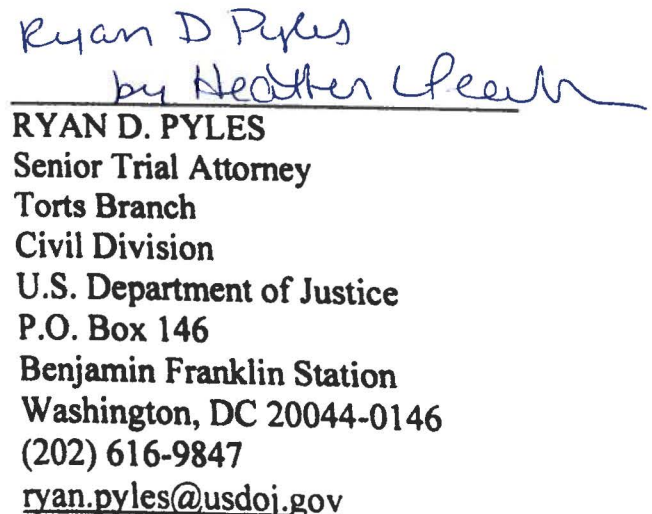 Ryan D Pyles
by Heather L
RYAN D. PYLES
Senior Trial Attorney
Torts Branch
Civil Division
U.S. Department of Justice
P.O. Box 146
Benjamin Franklin Station
Washington, DC 20044-0146
(202) 616-9847
ryan.pyles@usdoj.gov